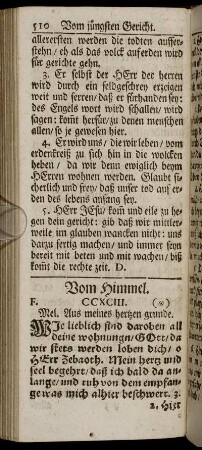 510 Vom jüngsten Gericht.
allerersten werden die todten auffer-
stehn/ eh als das volck auf erden wird
für gerichte gehn.
3. Er selbst der HErr der herren
wird durch ein feldgeschrey erzeigen
weit und ferren/ daß er fürhanden sey:
des Engels wort wird schallen/ wird
sagen: komt herfür/ zu denen menschen
allen/ so je gewesen hier.
4. Er wird uns/ die wir leben/ vom
erdenkreiß zu sich hin in die wolcken
heben/ da wir denn ewiglich beym
HErren wohnen werden. Glaubt si-
cherlich und frey/ daß unser tod auf er-
den des lebens anfang sey.
5. HErr JEsu/ kom und eile zu he-
gen dein gericht: gib daß wir mittler-
weile im glauben wancken nicht: uns
darzu fertig machen/ und immer seyn
bereit mit beten und mit wachen/ biß
komt die rechte zeit. D.
Vom Himmel.
F. CCXCIII. (*)
Mel. Aus meines hertzen grunde.
WIe lieblich sind daroben all
deine wohnungn/ GOtt/ da
wir stets werden loben dich/ o
HErr Zebaoth. Mein hertz und
seel begehrt/ daß ich bald da an-
lange/ und ruh von dem empfan-
ge was mich alhier beschwert.
2. Hier